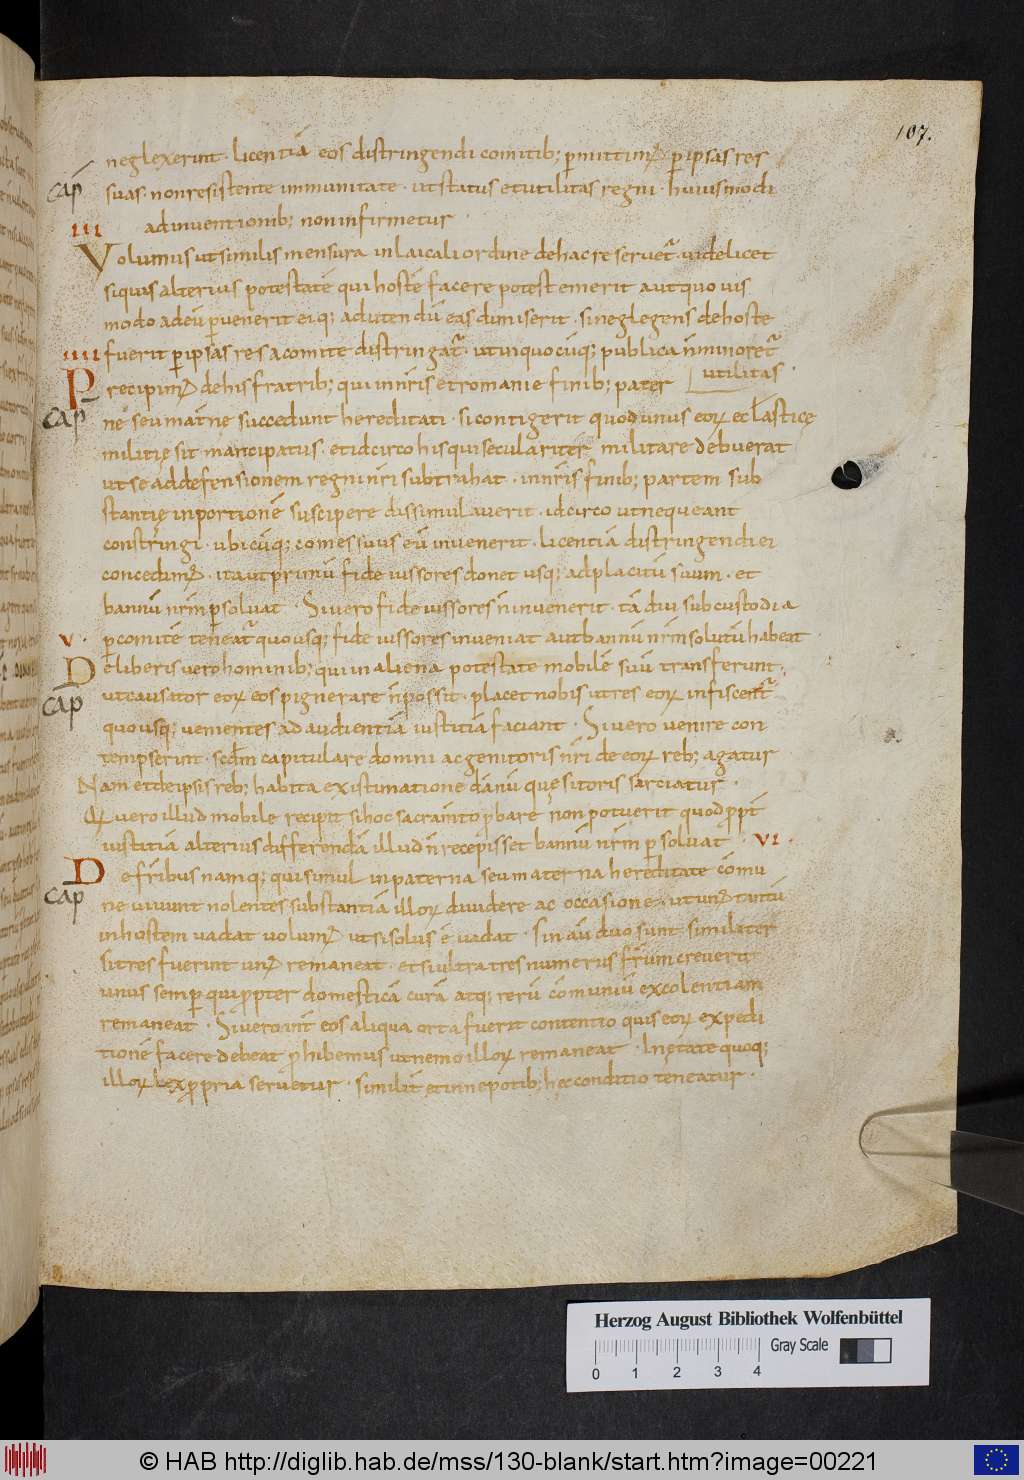 107.
neglexerint · licentiā eos distringendi comitib; ꝑmittimꝰ ꝑ ipsas res
cap̄
suas · non resistente inmunitate · ut status et utilitas regni · huiusmodi
III
adinventionib; non infirmetur ·
Volumus ut similis mensura in laicali ordine de hac re servet̄ videlicet
siquis alterius potestatē qui hostē facere potest emerit aut quovis
modo ad eū ꝑvenerit eiq; ad utendū eas dimiserit · si neglegens de hoste
IIII
fuerit ꝑ ipsas res a comite distringat̄ · ut in quocūq; publica n̄ minoret̄
utilitas ·
Precipimꝰ de his fratrib; qui in nr̄is et romanie finib; pater
cap̄
ne seu matr̄ne succedunt hereditati · si contigerit quod unus eoꝝ eccl̄astice
militię sit mancipatus · et idcirco his qui seculariter militare debuerat
ut se ad defensionem regni nr̄i subtrahat · in nr̄is finib; partem sub
stantię in portionē suscipere dissimulaverit · idcirco ut nequeant
constringi · ubicūq; comes suus eū invenerit · licentiā distringendi ei
concedimꝰ · ita ut primū fideiussores donet usq; ad placitū suum · et
bannū nr̄m ꝑsolvat · Si vero fideiussores n̄ invenerit · tādiu sub custodia
V ·
ꝑ comitē teneat̄ quousq; fideiussores inveniat aut bannū nr̄m solutū habeat ·
De liberis vero hominib; qui in aliena potestate mobilē suū transferunt ·
cap̄
ut causator eoꝝ eos pignerare n̄ possit · placet nobis ut res eoꝝ infiscent̄
quousq; venientes ad audientiā iustitiā faciant · Si vero venire con
tempserint · scd̄m capitulare domni ac genitoris nr̄i de eoꝝ reb; agatur
Nam et de ipsis reb; habita existimatione dānū quęsitoris sarciatur ·
Qꝛ vero illud mobile recipit si hoc sacram̄to ꝓbare non potuerit quod ꝓpt̄
iustitiā alterius differendā illud n̄ recepisset bannū nr̄m ꝑsolvat · VI ·
De fr̄ibus namq; qui simul in paterna seu materna hereditate cōmu
cap̄
ne vivunt nolentes substantiā illoꝝ dividere ac occasione · ut unꝰ tantū
in hostem vadat volumꝰ ut si solus ē vadat · Sin aū duo sunt similiter
si tres fuerint unꝰ remaneat · et si ultra tres numerus fr̄um creverit
unus semꝑ qui ꝓpter domesticā curā atq; rerū cōmuniū excolentiam
remaneat · Si vero int̄ eos aliqua orta fuerit contentio quis eoꝝ expedi
tionē facere debeat ꝓhibemus ut nemo illoꝝ remaneat · In ętate quoq;
illoꝝ lex propria servetur · similit̄ et in nepotib; hęc conditio teneatur ·
Herzog August Bibliothek Wolfenbüttel
Gray Scale
0 1 2 3 4
© HAB http://diglib.hab.de/mss/130-blank/start.htm?image=00221